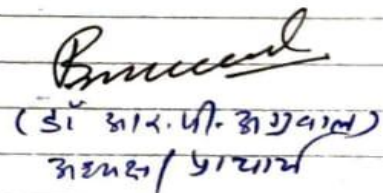 (डॉ आर.पी. अग्रवाल)
अध्यक्ष/प्राचार्य